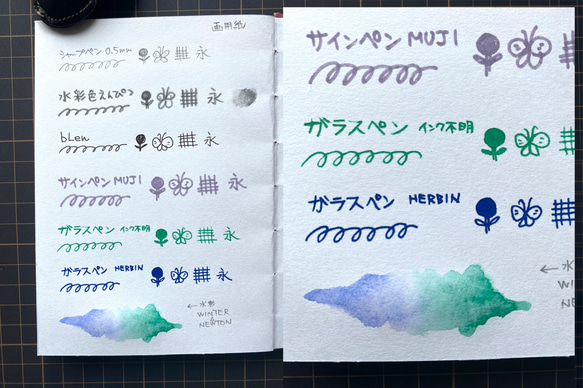 画用紙
シャープペン 0.5mm 永
水彩色えんぴつ 永
bLen 永
サインペン MUJI 永
ガラスペン インク不明 永
ガラスペン HERBIN 永
← 水彩
WINTER
&
NEWTON
サインペン MUJI
ガラスペン インク不明
ガラスペン HERBIN
← 水
WI
N